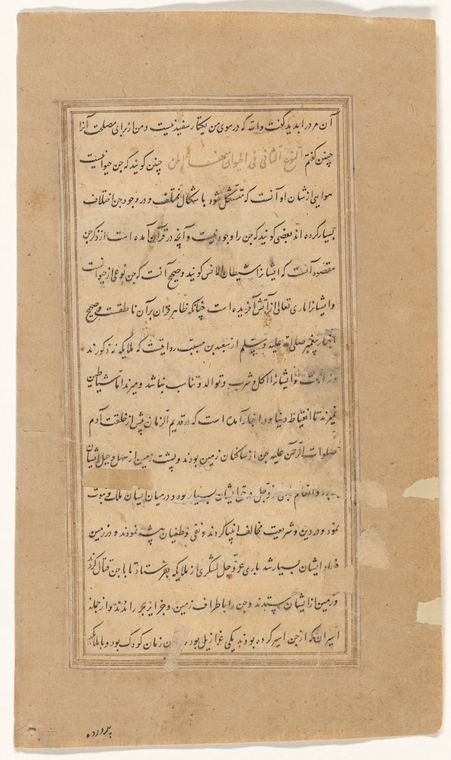 آن مرد را بدید گفت والله که در موی من یکتار سفید نیست و من از برای مصلحت آنرا
چنین گفتم النوع الثانی فی الحیوان الجن چنین کویند که جن حیوانیست
هوایی از شان او آنست که متشکل شود باشکال مختلف و در وجود جن اختلاف
بسیار کرده اند بعضی کویند که جن را وجود نیست و آنچه در قرآن آمده است از ذکر جن
مقصود آنست که ایشانرا شیطان الانس کویند و صحیح آنست که جن نوعی از حیوانست
و ایشانرا باری تعالی از آتش آفریده است چنانکه ظاهر قرآن بر آن ناطقست و صحیح
اخبار پیغمبر صلی الله علیه و سلم از سعید بن مسیب روایتست که ملایکه نه ذکورند
و نه اناث و ایشانرا اکل و شرب و توالد و تناسب نباشد و میرند اما شیاطین
نمیرند تا انقباط دنیا و در اخبار آمده است که در قدیم الزمان پیش از خلقت آدم
صلوات الرحمن علیه جن از ساکنان زمین بودند و پشت زمین از سهل و جبل ایشان
بود و انعام عزوجل در حق ایشان بسیار بود و در میان ایشان ملک و نبوت
نمود و در دین و شریعت مخالف انبیا کردند و بغی و طغیان پیشه نمودند و در زمین
فساد ایشان بسیار شد باری عزوجل لشکری از ملایکه بفرستاد تا با جن قتال کردند
و زمین از ایشان بستدند و جن را باطراف زمین و جزایر بحر راندند و از جمله
اسیران که از جن اسیر کرده بودند یکی عزازیل بود و در آن زمان کودک بود و با ملایکه
پرورده